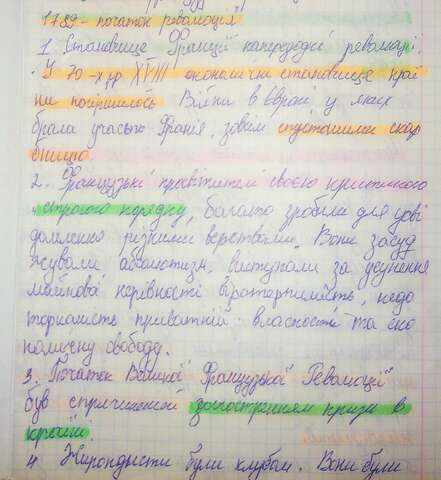 1789 - початок революція
1. Становище Франції напередодні революції.
- У 70-х рр XVIII економічне становище краї
ни погіршилось Війни в Європі, у яких
брала участь Франія, зовсім спустошили скар
бницю.
2. Французькі просвітителі своєю критикою
"старого порядку, багато зробили для усві
домлення різними верствами. Вони засуд
жували абсолютизм, виступали за усунення
майнової нерівності віротерпимість, недо
торканість приватній власності та еко
номічну свободу.
3. Початок Великої Французької Революції
був спричинений загостренням кризи в
країні.
4 Жирондисти були клубом. Вони були